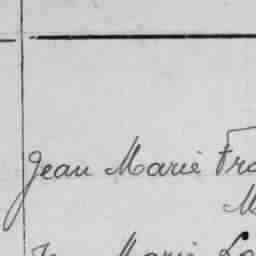 Jean Marie Fra
M
Jean Marie La